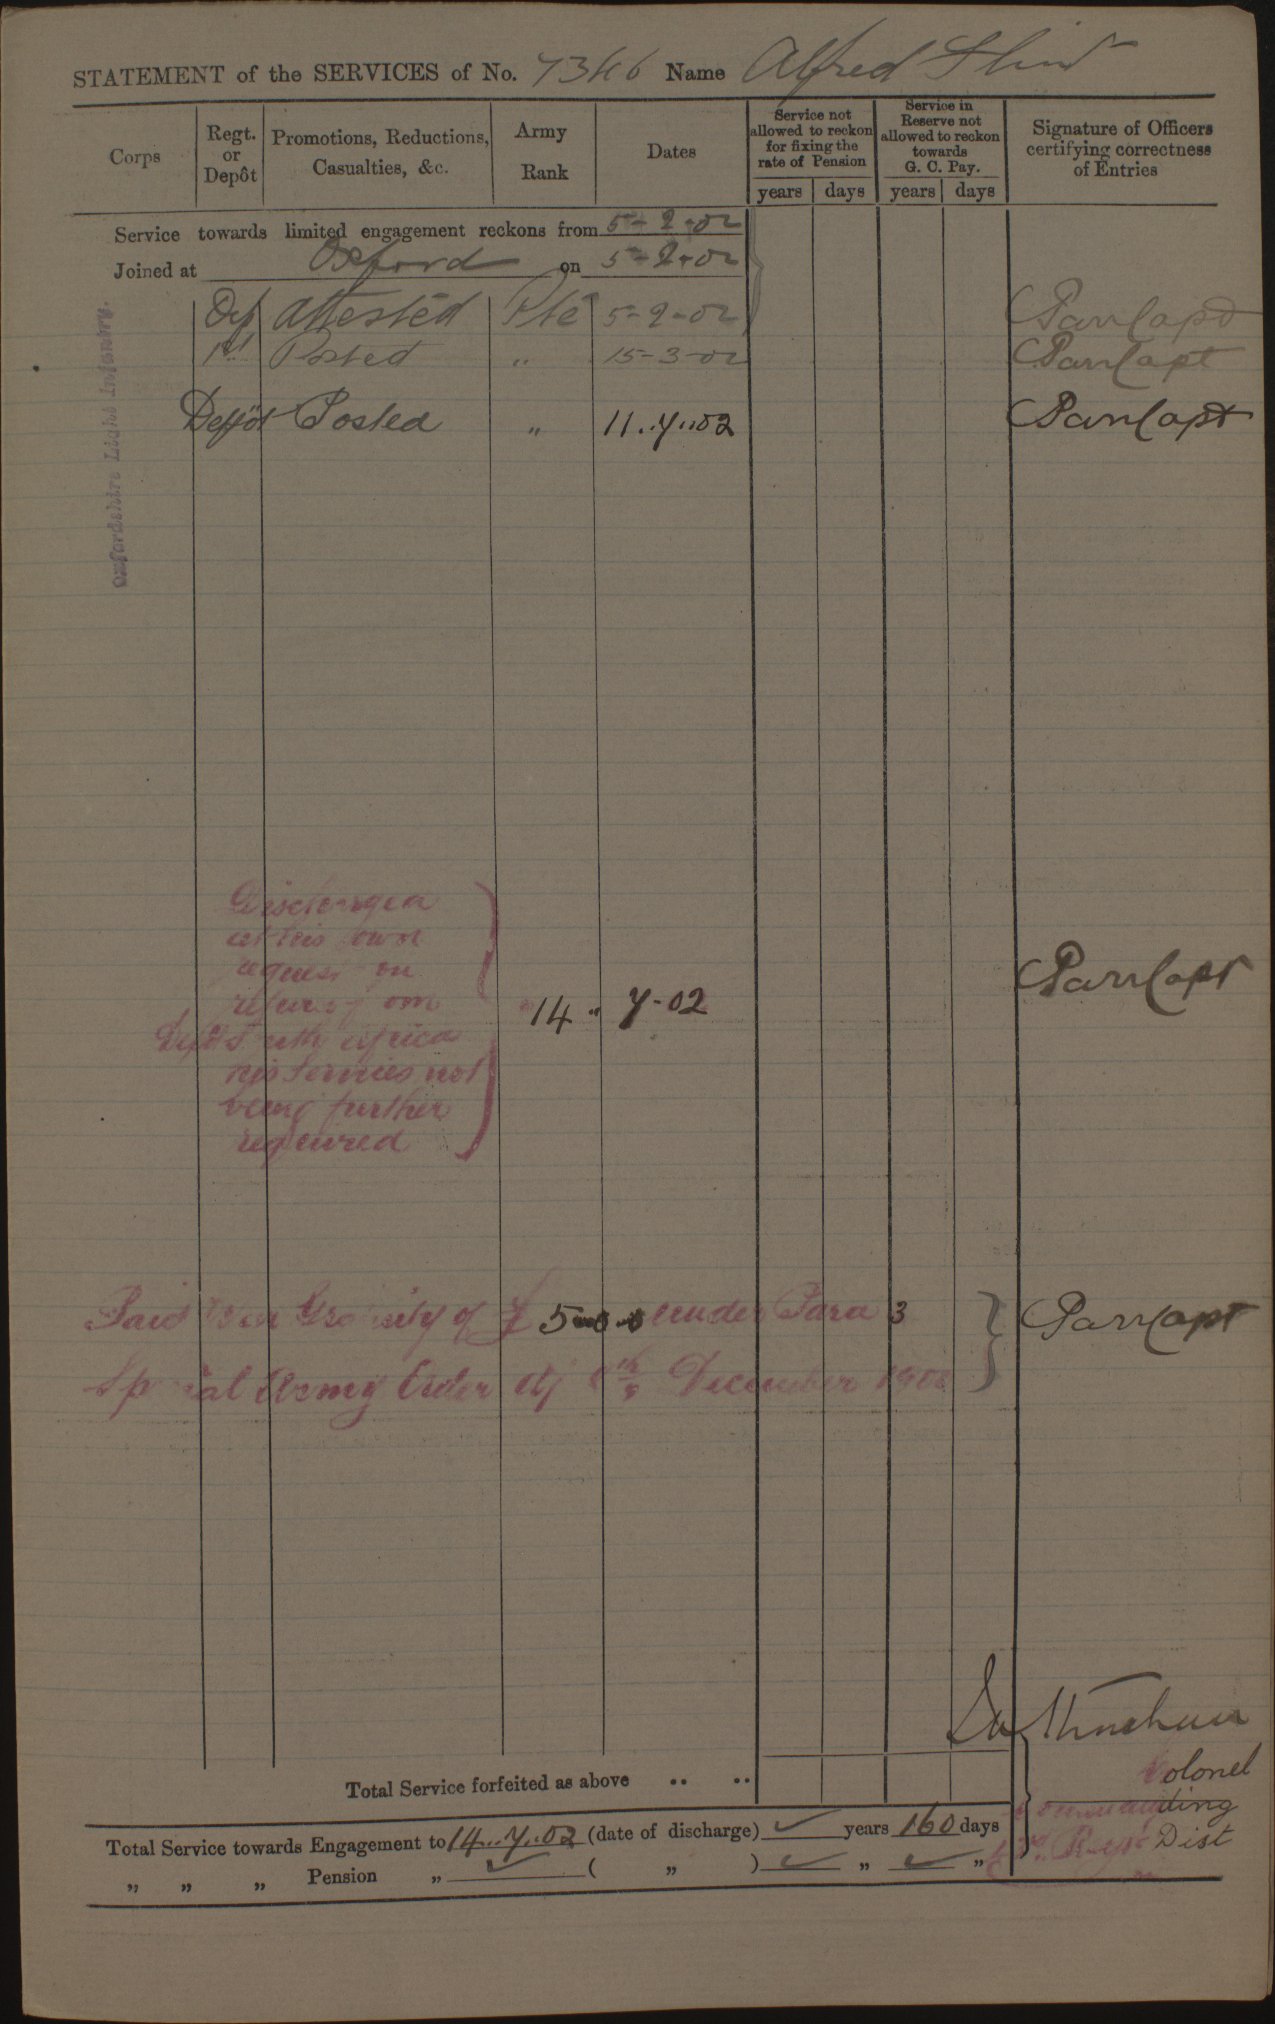 STATEMENT of the SERVICES of No. 7346 Name Alfred
Corps
Regt. or Depôt
Promotions, Reductions, Casualties, &c.
Army Rank
Dates
Service not allowed to reckon for fixing the rate of Pension
years days
Service in Reserve not allowed to reckon towards G. C. Pay.
years days
Signature of Officers certifying correctness of Entries
Service towards limited engagement reckons from 5-2-02
Joined at Oxford on 5-2-02
Oxfordshire Light Infantry.
Dep Attested Pte 5-2-02 Capt
1st Posted " 15-3-02 Capt
Depôt Posted " 11..7..02 Capt
Discharged
at his own
request on
return from
Depôt South Africa
his services not
being further
required
14 " 7-02 Capt
Paid War Gratuity of £ 5-0-0 under Para 3 Capt
Special Army Order December
Colonel
Total Service forfeited as above .. ..
Commanding
Total Service towards Engagement to 14..7..02 (date of discharge) ✓ years 160 days
Regt Dist
„ „ „ Pension „ ✓ ( „ ) ✓ „ ✓ „